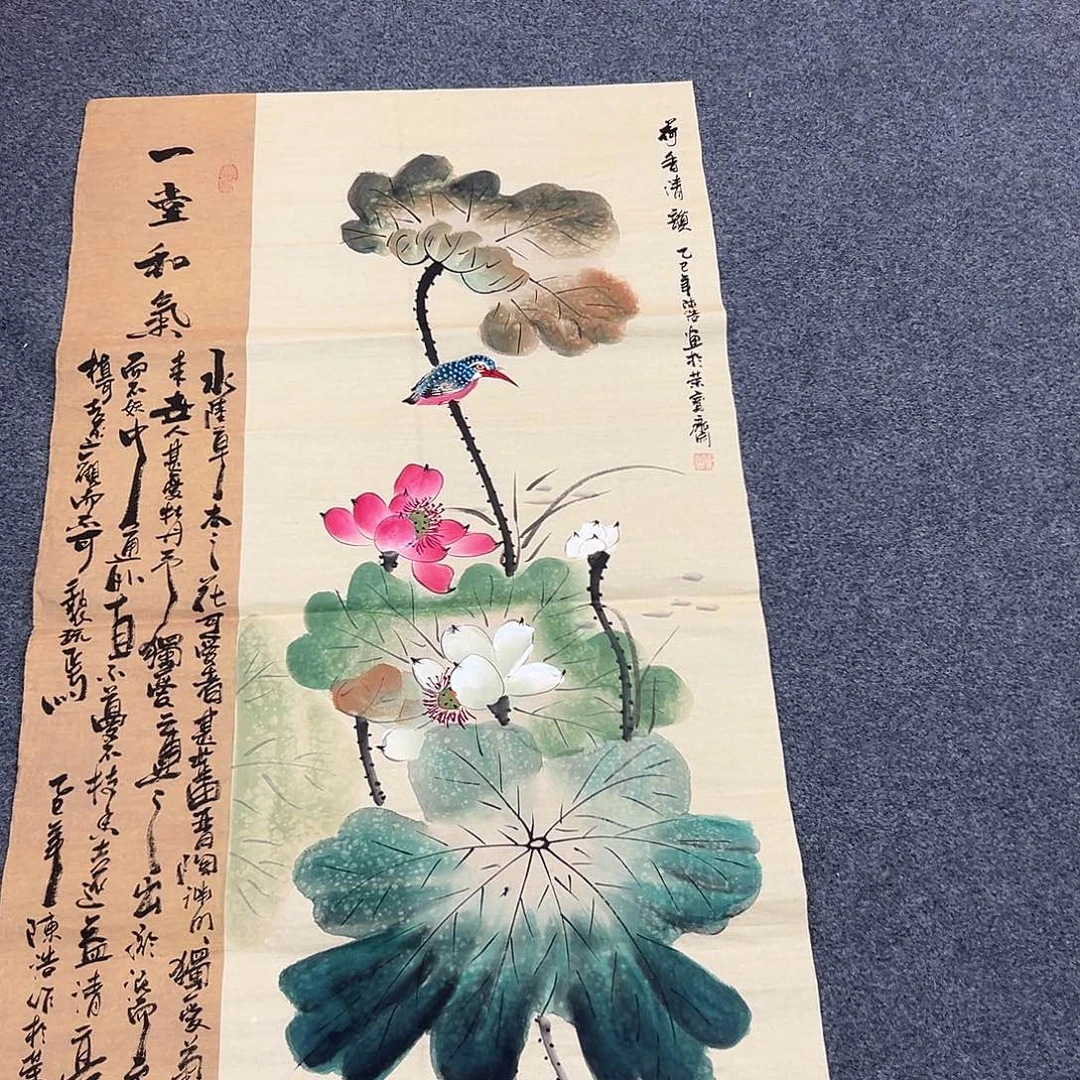 荷香清韻 乙巳年陳浩画於荣寶齋
一壶和氣
水陸草木之花可愛者甚蕃晋陶渊明獨愛菊
来世人甚愛牡丹予獨愛蓮之出淤泥而
而不妖中通外直不蔓不枝香遠益清亭
植可遠觀而不可褻玩焉 乙巳年 陳浩作於荣